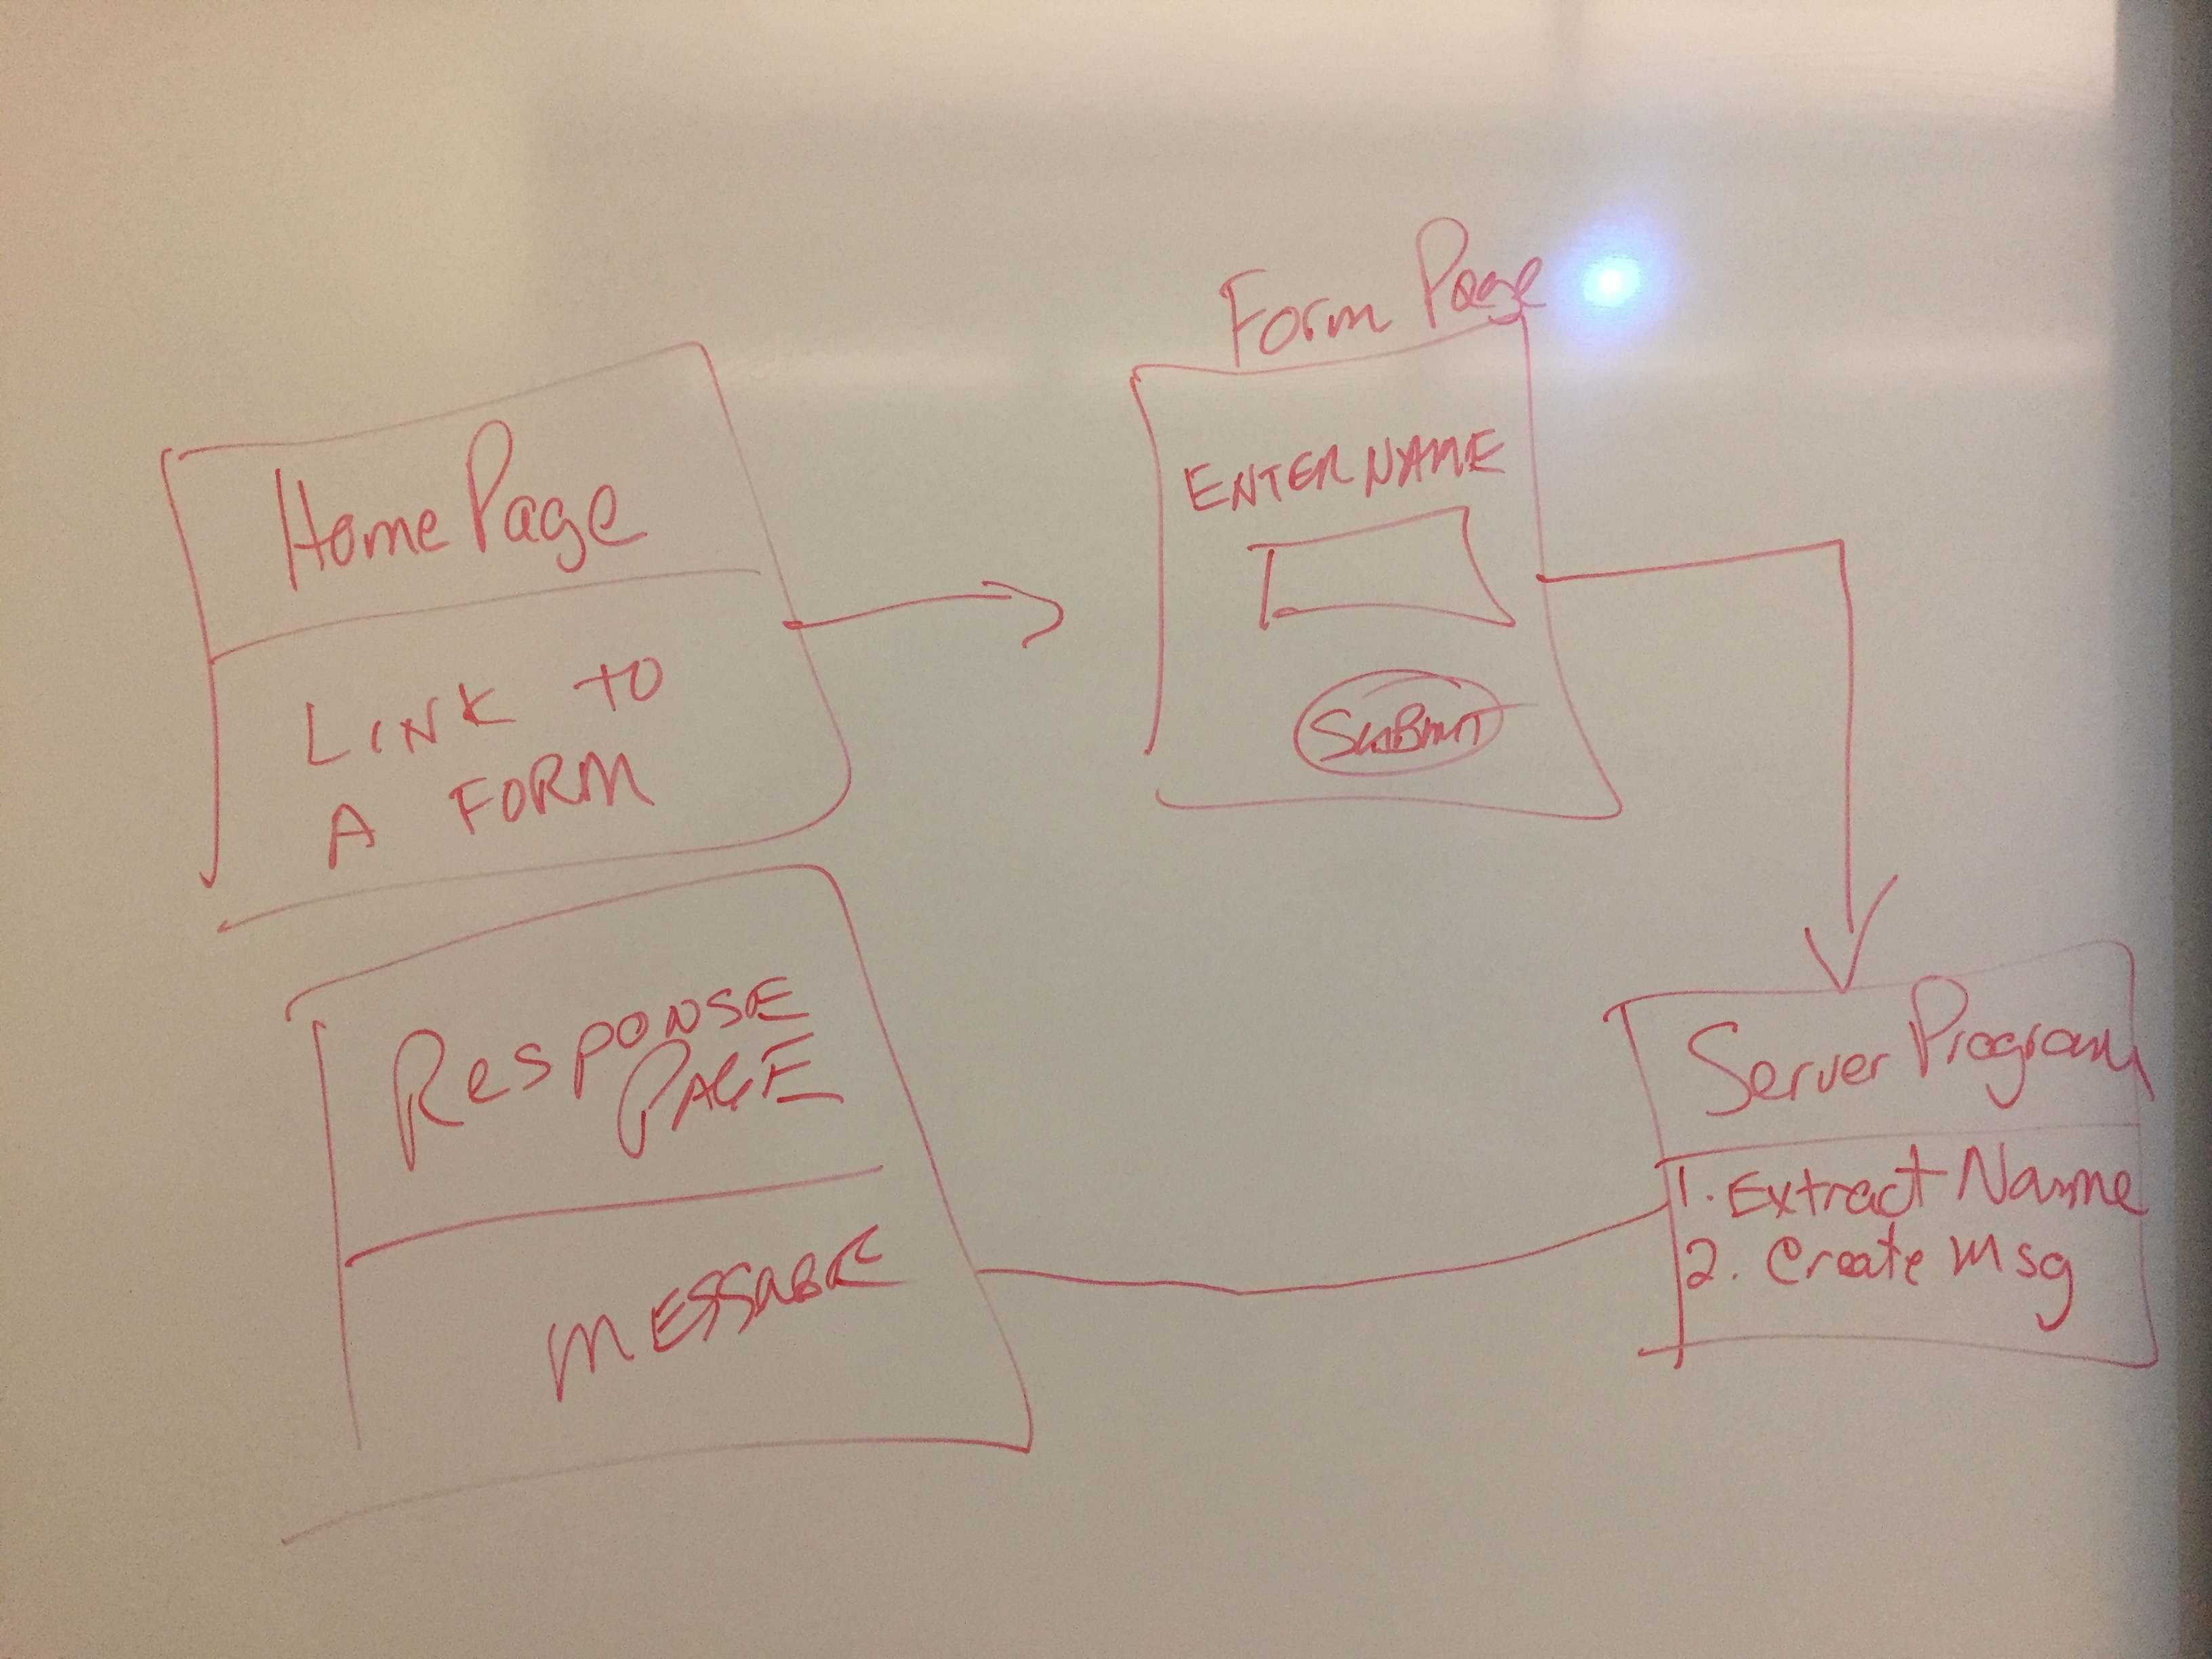 Home Page
LINK TO
A FORM
Form Page
ENTER NAME
SUBMIT
Server Program
1. Extract Name
2. Create Msg
RESPONSE
PAGE
MESSAGE